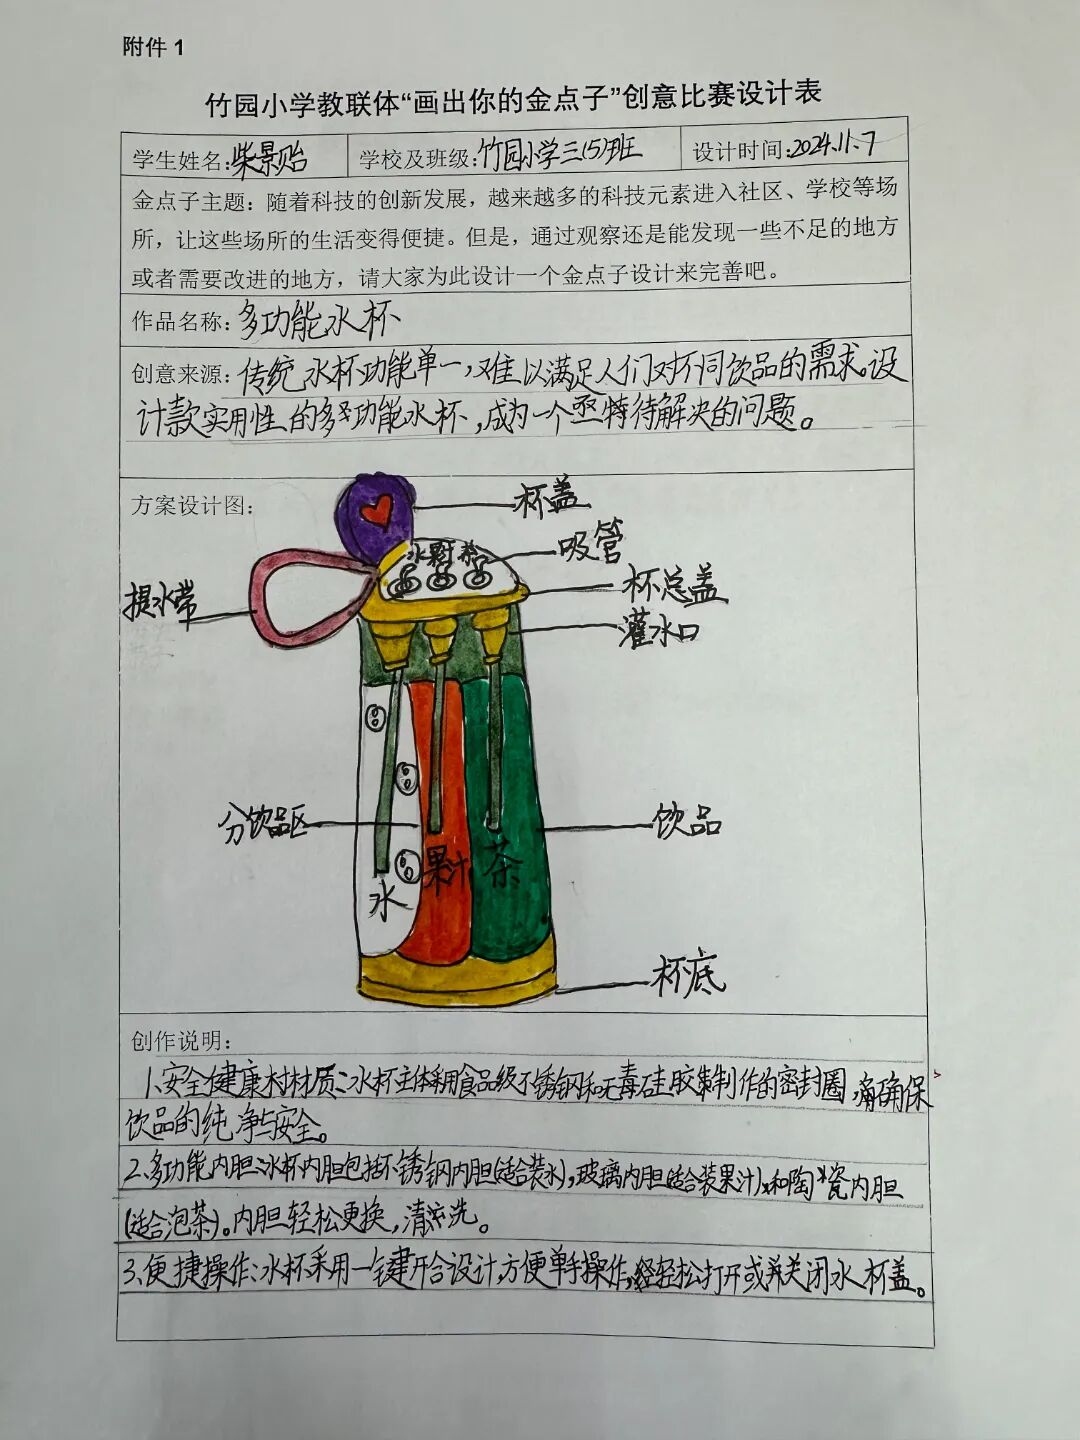 附件 1
竹园小学教联体“画出你的金点子”创意比赛设计表
学生姓名:柴景贻 学校及班级:竹园小学三(5)班 设计时间:2024.11.7
金点子主题：随着科技的创新发展，越来越多的科技元素进入社区、学校等场
所，让这些场所的生活变得便捷。但是，通过观察还是能发现一些不足的地方
或者需要改进的地方，请大家为此设计一个金点子设计来完善吧。
作品名称:多功能水杯
创意来源:传统水杯功能单一,难以满足人们对不同饮品的需求。设
计款实用性的多功能水杯,成为一个亟待解决的问题。
方案设计图:
杯盖
水 果汁 茶
吸管
杯总盖
提水带
灌水口
分饮品区
饮品
果汁 茶
水
杯底
创作说明:
1.安全健康材质:水杯主体采用食品级不锈钢和无毒硅胶制作的密封圈,确保
饮品的纯净与安全。
2.多功能内胆:水杯内胆包括不锈钢内胆(适合装水),玻璃内胆(适合装果汁)和陶瓷内胆
(适合泡茶)。内胆轻松更换,清洗。
3.便捷操作:水杯采用一键开合设计,方便单手操作,轻松打开或关闭水杯盖。